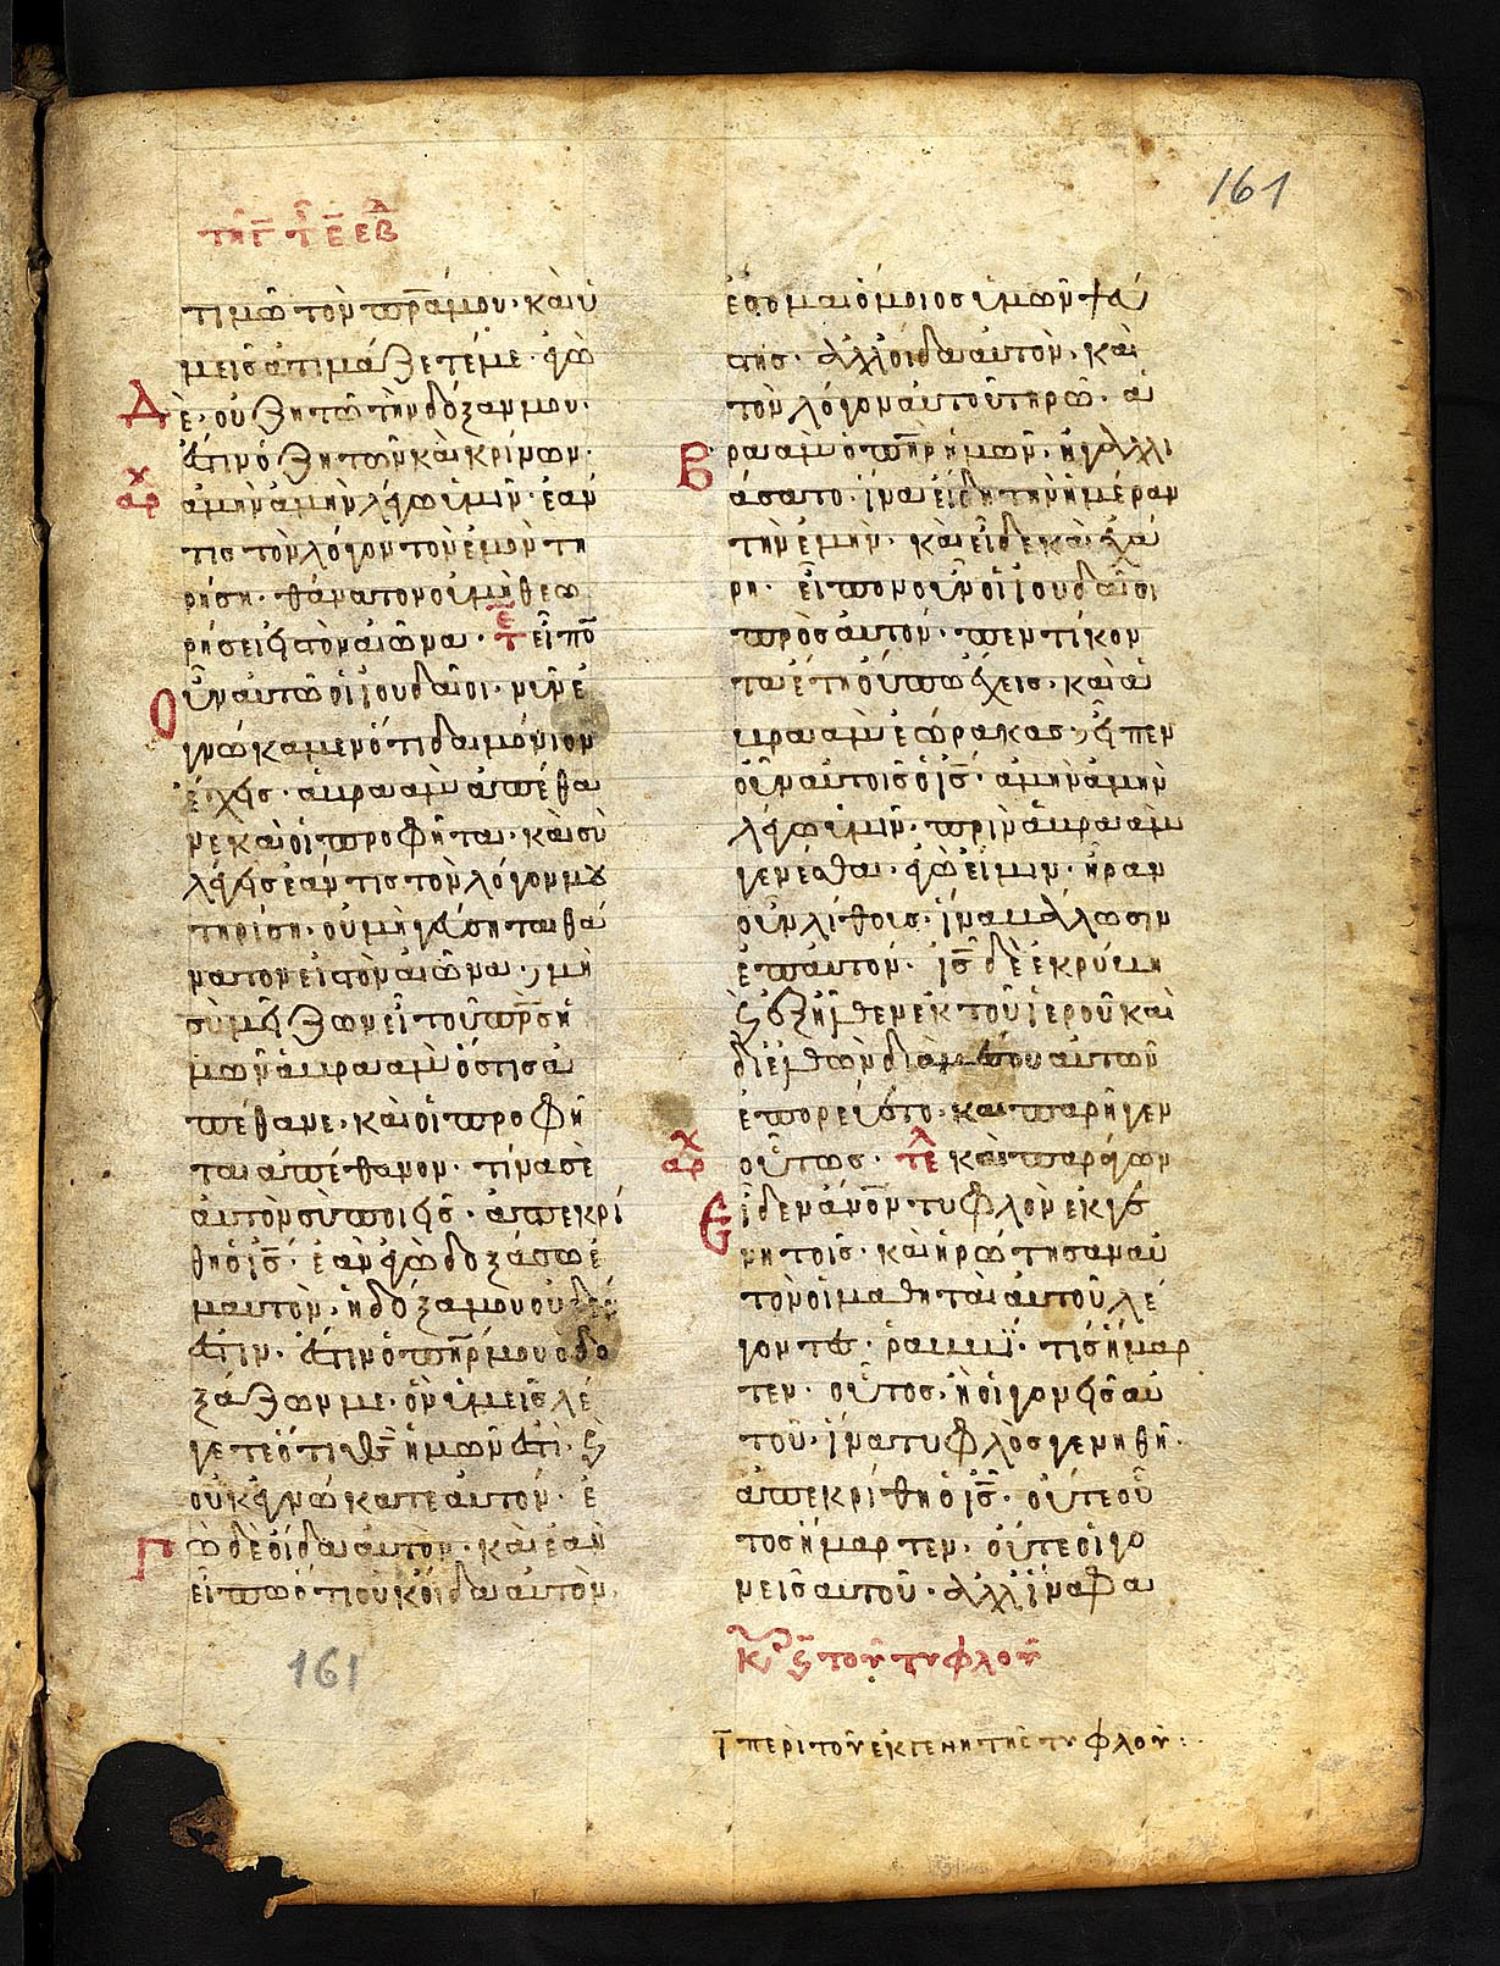 161
τῆ γ τ ε εβ
τιμῶ τὸν πρ̅α μου· καὶ ὑ
μεῖς ἀτιμάζετέ με· ἐγὼ
Δ
δὲ· οὐ ζητῶ τὴν δόξαν μου·
ἔστιν ὁ ζητῶν καὶ κρίνων·
αρχ
ἀμὴν ἀμὴν λέγω ὑμῖν· ἐάν
τις τὸν λόγον τὸν ἐμὸν τη
ρήση· θάνατον οὐ μὴ θεω
ρήσει εἰς τὸν αἰῶνα· τε εἶπο̅
Ο
οὖν αὐτῶ οἱ ἰουδαῖοι· νῦν ἐ
γνώκαμεν ὅτι δαιμόνιον
ἔχεις· ἀβραὰμ ἀπέθα
νε καὶ οἱ προφῆται· καὶ σὺ
λέγεις ἐάν τις τὸν λόγον μου
τηρήση· οὐ μὴ γεύσηται θα
νάτου εἰς τὸν αἰῶνα· μὴ
σὺ μείζων εἶ τοῦ πρ̅ς ἡ
μῶν ἀβραὰμ ὅστις ἀ
πέθανε· καὶ οἱ προφῆ
ται ἀπέθανον· τίνα σε
αὐτὸν σὺ ποιεῖς· ἀπεκρί
θη ὁ ι̅ς̅· ἐὰν ἐγὼ δοξάσω ἐ
μαυτὸν· ἡ δόξα μου οὐδέν
ἐστιν· ἔστιν ὁ πη̅ρ μου ὁ δο
ξάζων με· ὃν ὑμεῖς λέ
γετε ὅτι θ̅ς̅ ἡμῶν ἐστι· καὶ
οὐκ ἐγνώκατε αὐτόν· ἐ
Γ
ὼ δὲ οἶδα αὐτὸν· καὶ ἐὰν
εἴπω ὅτι οὐκ οἶδα αὐτὸν·
161
ἔσομαι ὅμοιος ὑμῶν ψεύ
στης· ἀλλ' οἶδα αὐτὸν· καὶ
τὸν λόγον αὐτοῦ τηρῶ· ἀ
Β
ραὰμ ὁ πη̅ρ ἡμῶν· ἠγαλλι
άσατο· ἵνα εἴδη τὴν ἡμέραν
τὴν ἐμήν· καὶ εἶδε καὶ ἐχά
ρη· εἶπον οὖν οἱ ἰουδαῖοι
πρὸς αὐτόν· πεντίκον
τα ἔτη οὔπω ἔχεις· καὶ ἀ
βραὰμ ἑώρακας· εἶπεν
οὖν αὐτοῖς ὁ ι̅ς̅· ἀμὴν ἀμὴν
λέγω ὑμῖν· πρὶν ἀβραὰμ
γενέσθαι· ἐγὼ εἰμιν· ἦραν
οὖν λίθοις· ἵνα βάλλωσιν
ἐπ' αὐτόν· ι̅ς̅ δὲ ἐκρύβη
καὶ ἐξῆλθεν ἐκ τοῦ ἱεροῦ καὶ
διελθὼν διὰ μέσου αὐτῶν
ἐπορεύετο· καὶ παρῆγεν
αρχ
οὕτως· τελ καὶ παράγων
Ε
ἴδεν ἄνο̅ν τυφλὸν ἐκ γε
νητοῖς· καὶ ἠρώτησαν αὐ
τὸν οἱ μαθηταὶ αὐτοῦ λέ
γοντες· ῥαββϊ· τίς ἥμαρ
τεν· οὗτος· ἢ οἱ γονεῖς αὐ
τοῦ· ἵνα τυφλὸς γενηθῆ·
ἀπεκρίθη ὁ ι̅ς̅· οὔτε οὗ
τος ἥμαρτεν· οὔτε οἱ γο
νεῖς αὐτοῦ· ἀλλ' ἵνα φα
Κυ ϛ τοῦ τυφλοῦ
ι̅ περὶ τοῦ ἐκ γενητῆς τυφλοῦ: